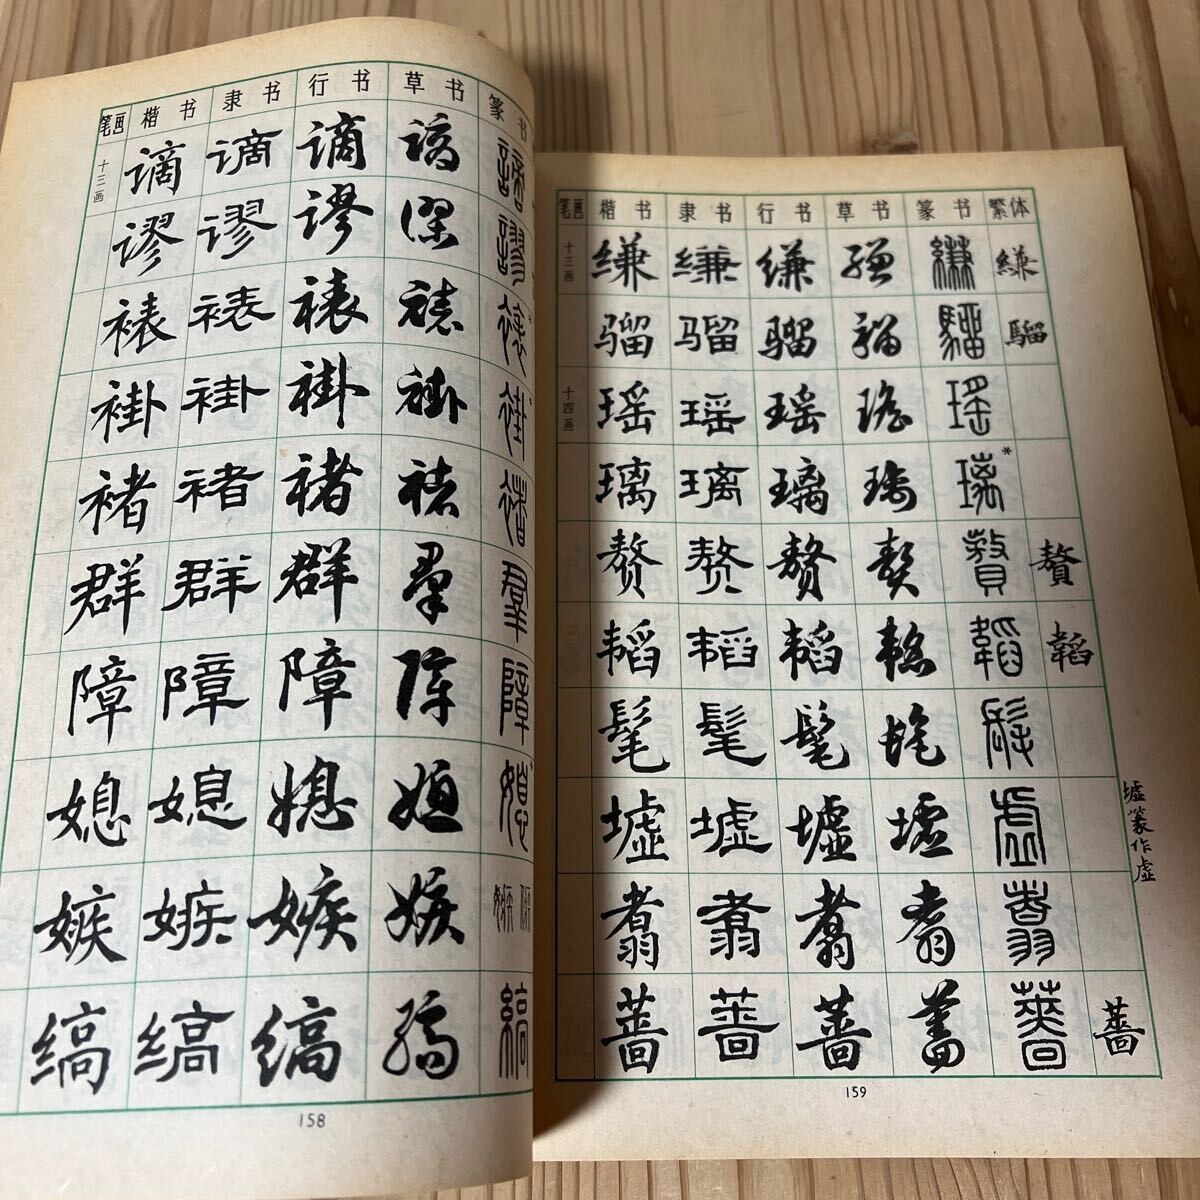 笔画 楷书 隶书 行书 草书 篆书
十三画 谪 谪 谪 谪 謫
谬 谬 谬 谬 謬
裱 裱 裱 裱 裱
褂 褂 褂 褂 褂
褚 褚 褚 褚 褚
群 群 群 群 羣
障 障 障 障 障
媳 媳 媳 媳 媳
嫉 嫉 嫉 嫉 嫉
缟 缟 缟 缟 縞
158
笔画 楷书 隶书 行书 草书 篆书 繁体
十三画 缣 缣 缣 缣 縑 縑
骝 骝 骝 骝 騮 騮
十四画 瑶 瑶 瑶 瑶 瑤
璃 璃 璃 璃 璃*
赘 赘 赘 赘 贅 贅
韬 韬 韬 韬 韜 韜
髦 髦 髦 髦 髦
墟 墟 墟 墟 虛
墟篆作虚
翥 翥 翥 翥 翥
蔷 蔷 蔷 蔷 薔 薔
159